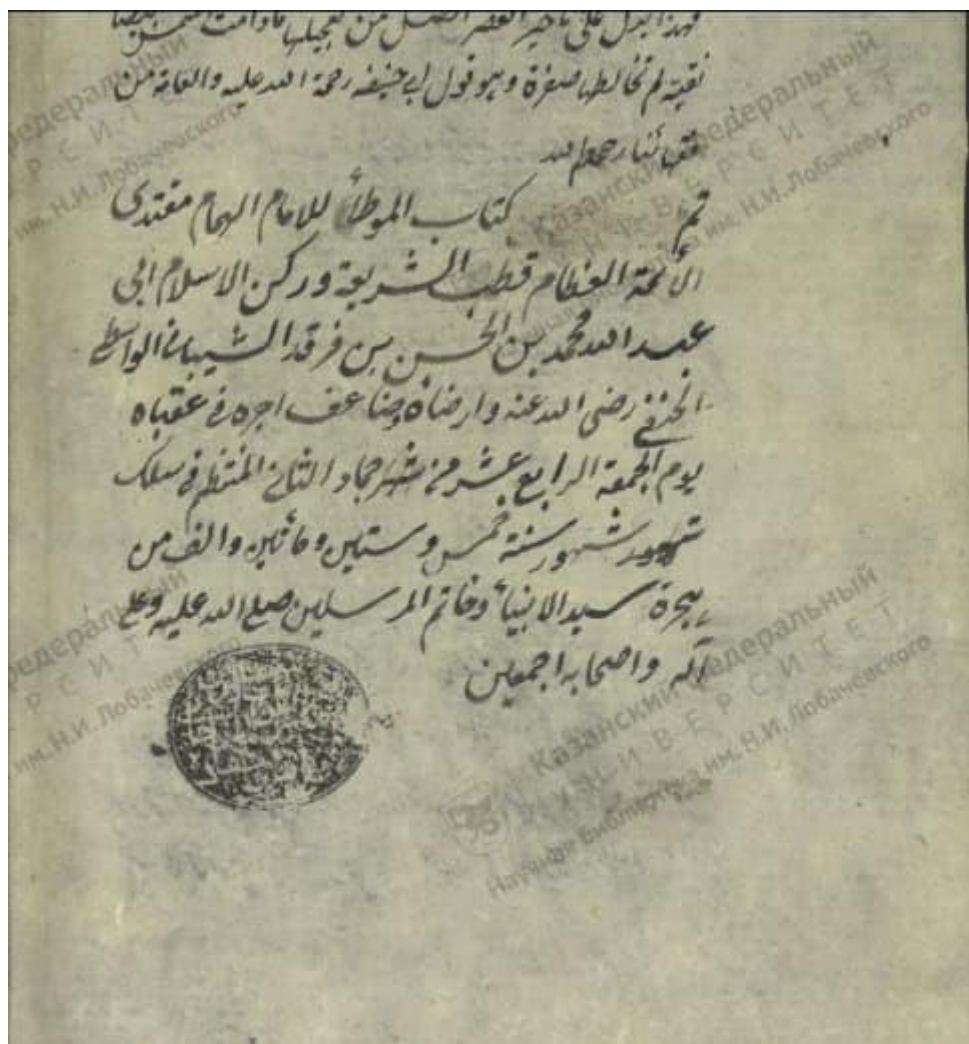 فهذا يدل على تأخير العصر افضل من تعجيلها ما دامت الشمس بيضاء
نقية لم تخالطها صفرة وهو قول ابي حنيفة رحمة الله عليه والعامة من
فقهائنا رحمهم الله
تم كتاب الموطأ للامام الهمام مقتدى
الأئمة العظام قطب الشريعة وركن الاسلام ابى
عبد الله محمد بن الحسن بن فرقد الشيبانے الواسطے
الحنفے رضى الله عنه وارضاه وضاعف اجره فے عقباه
يوم الجمعة الرابع عشر من شهر جماد الثانے المنتظم فے سلك
شهور سنة خمس وستين ومأتين والف من
هجرة سيد الانبياء وخاتم المرسلين صلے الله عليه وعلے
آله واصحابه اجمعين
Казанский федеральный
УНИВЕРСИТЕТ
Научная библиотека им. Н.И. Лобачевского